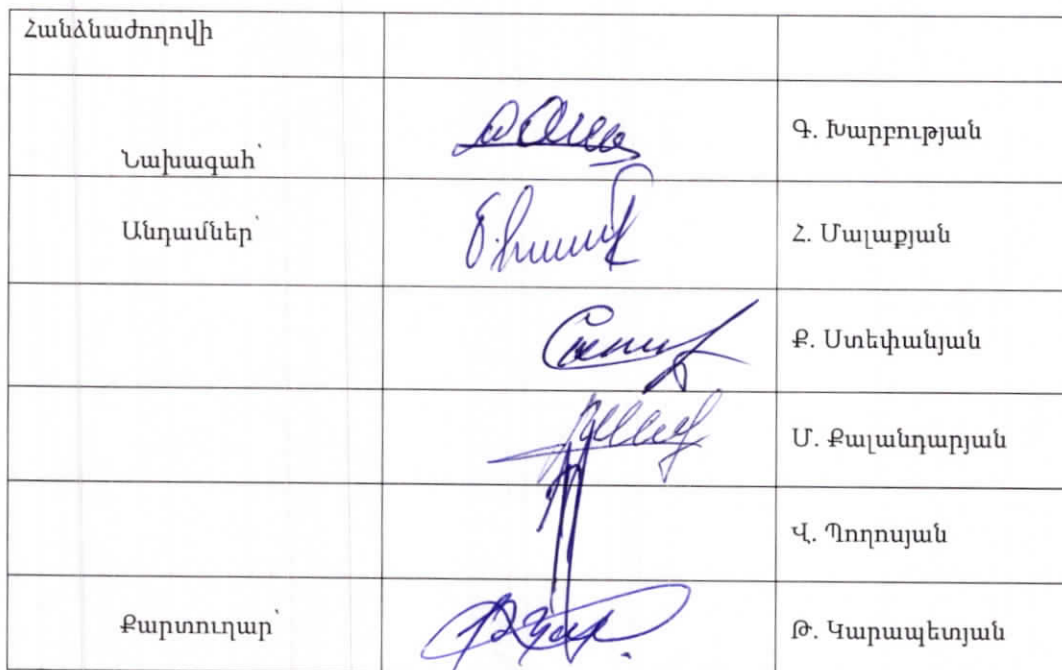 Հանձնաժողովի
Նախագահ՝ Գ. Խարբության
Անդամներ՝ Հ. Մալաքյան
Ք. Ստեփանյան
Մ. Քալանդարյան
Վ. Պողոսյան
Քարտուղար՝ Թ. Կարապետյան